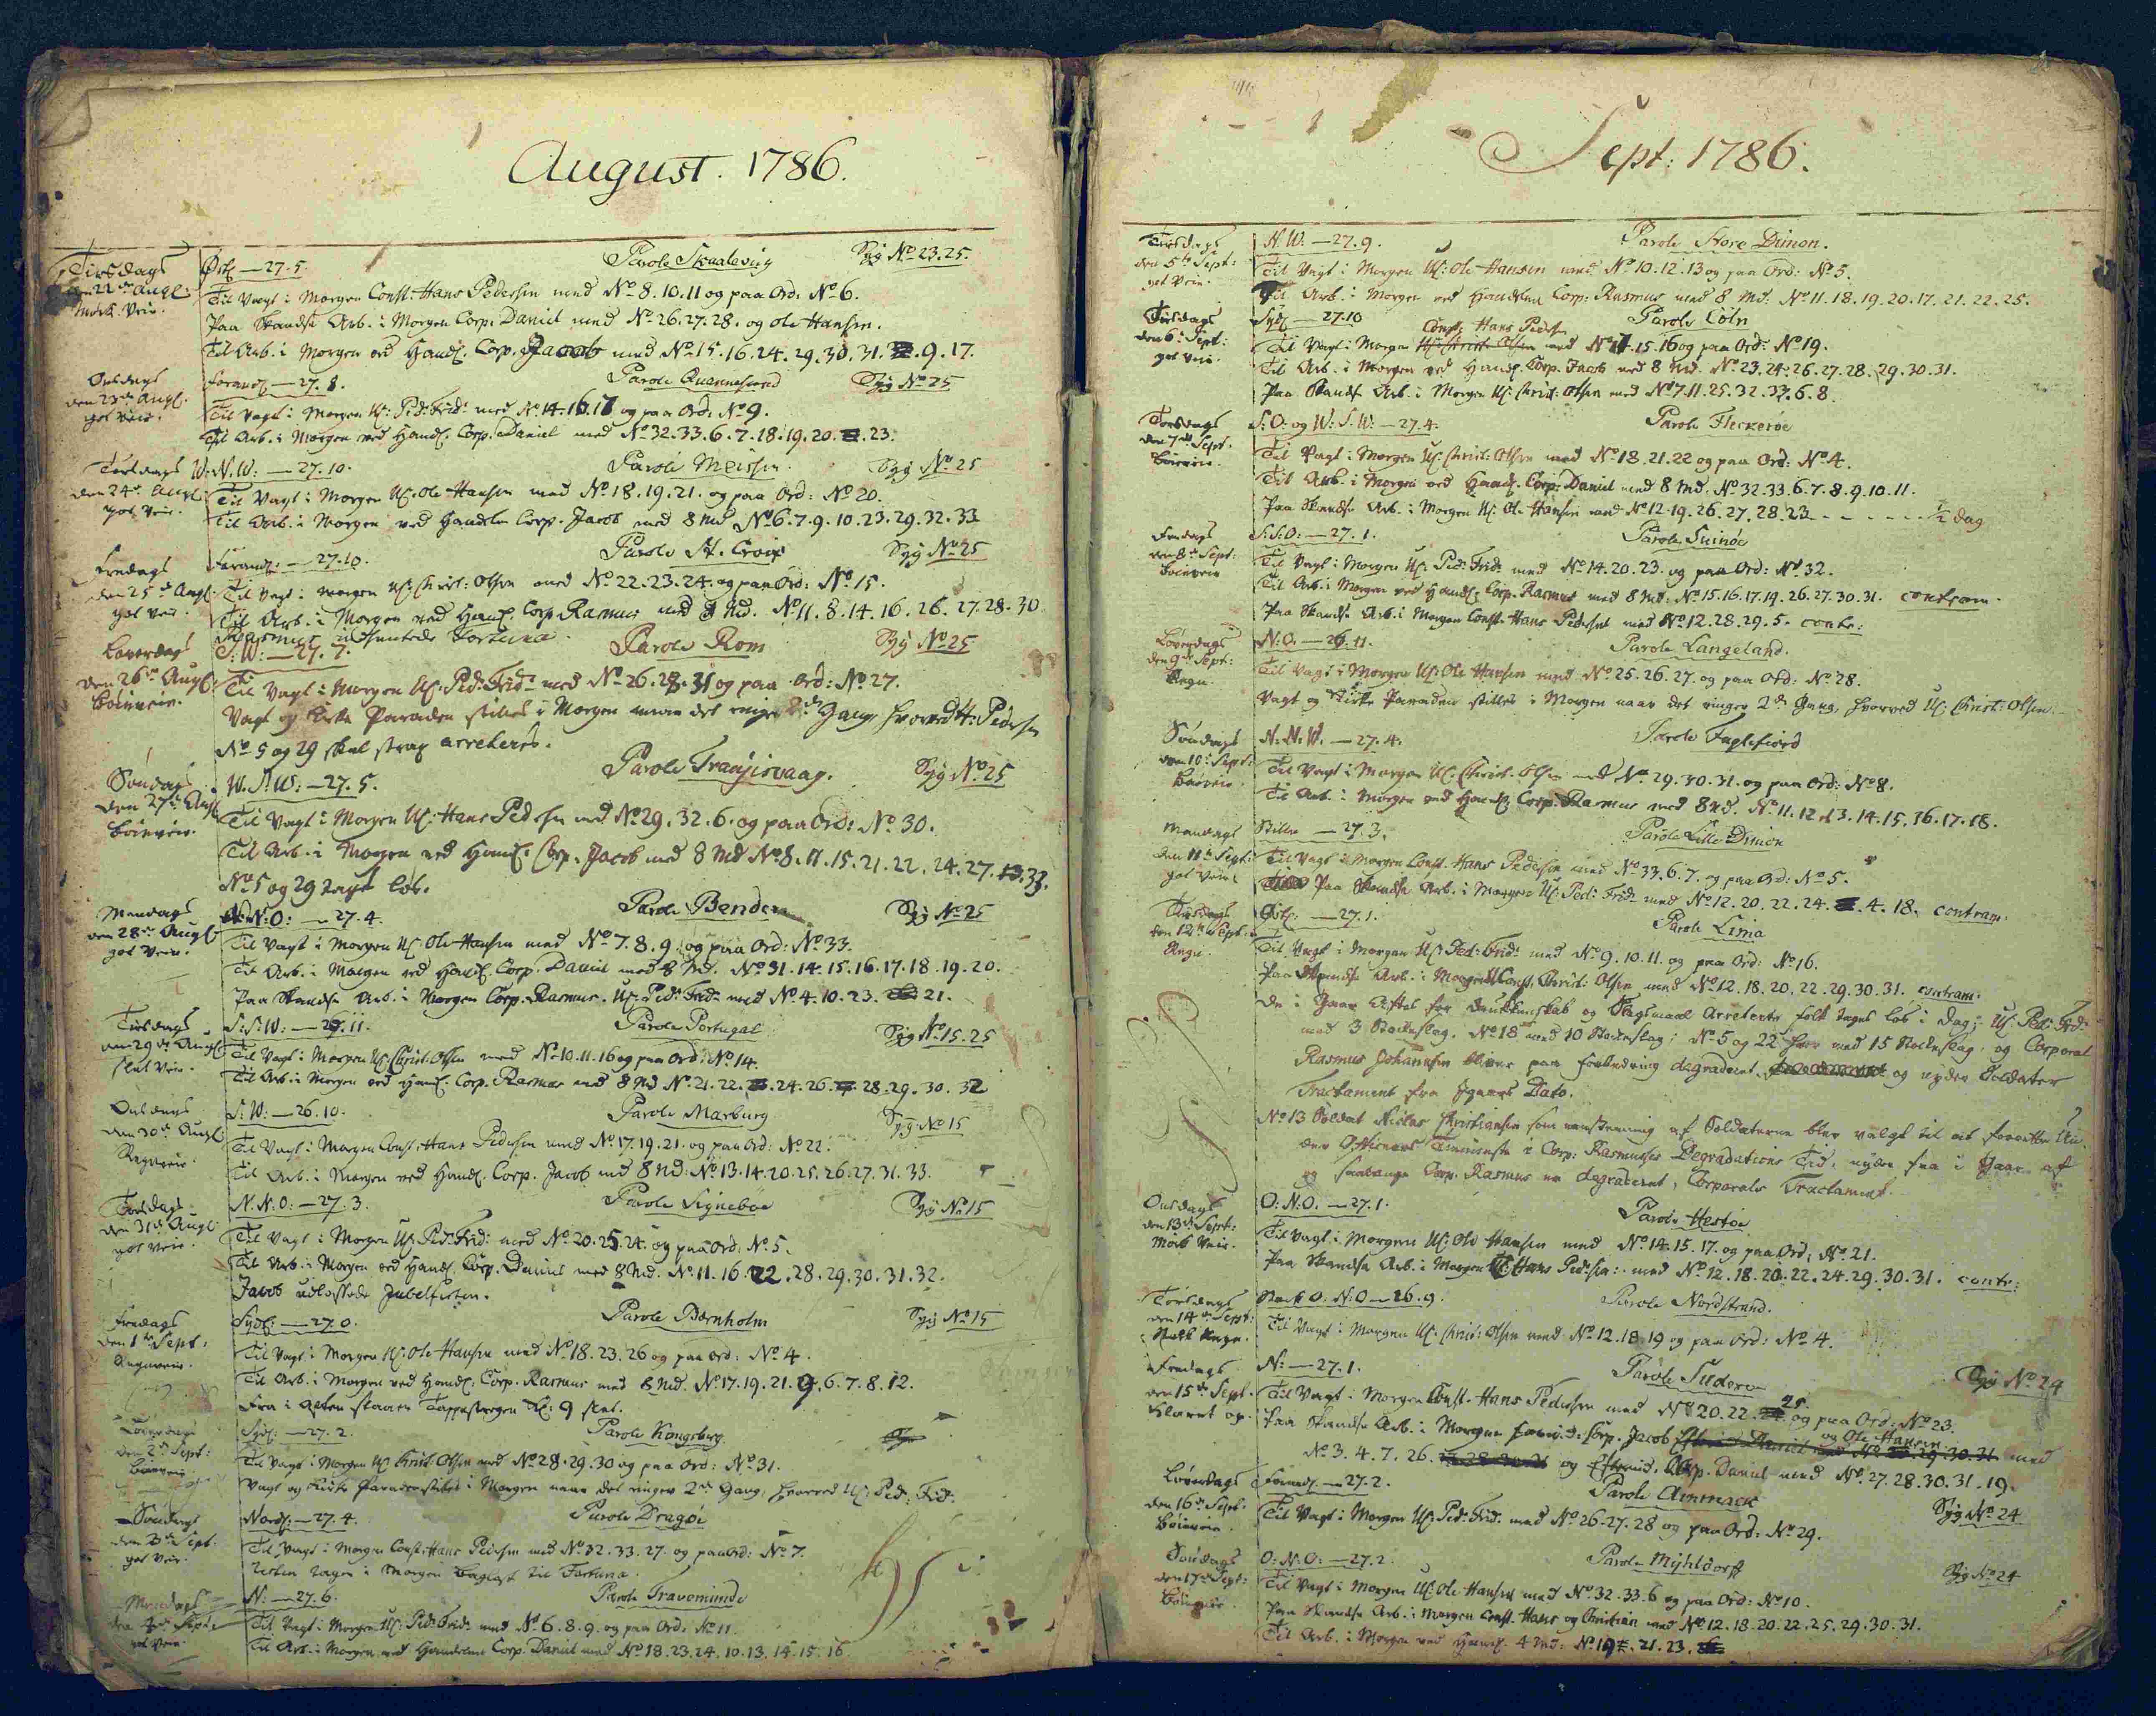 August. 1786.
Tirsdags den 22de Augl: Mørk Veir.
Østl. — 27.5. Parole Skaalevig Syg No 23.25.
Til Vagt i Morgen Const: Hans Pedersen med No 8.10.11 og paa Ord: No 6.
Paa Skandse Arb. i Morgen Corp: Daniel med No 26.27.28. og Ole Hansen.
Til Arb. i Morgen ved Handl. Corp. Jacob med No 15.16.24.29.30.31. .9.17.
Onsdags den 23de Augl. got Veir.
Forandl. — 27.8. Parole Quannesund Syg No 25
Til Vagt i Morgen UC: Ped: Frid: med No 14.16.17 og paa Ord: No 9.
Til Arb. i Morgen ved Handl. Corp. Daniel med No 32.33.6.7.18.19.20. .23.
Torsdags den 24de Augl: got Veir.
W:N.W: — 27.10. Parole Meissen. Syg No 25
Til Vagt i Morgen UC. Ole Hansen med No 18.19.21. og paa Ord: No 20.
Til Arb. i Morgen ved Handelen Corp. Jacob med 8 Md No 6.7.9.10.23.29.32.33
Fredags den 25de Augl. got Veir.
Forandl: — 27.10. Parole St. Croix Syg No 25
Til Vagt i Morgen UC: Christ: Olsen med No 22.23.24. og paa Ord: No 15.
Til Arb. i Morgen ved Handl. Corp. Rasmus med 8 Md. No 11.8.14.16.26.27.28.30
Rasmus indhentede Fortuna.
Løverdags den 26de Augl: Böieveir.
S:W: — 27.7. Parole Rom Syg No 25
Til Vagt i Morgen UC. Ped: Frid: med No 26.28.31 og paa Ord: No 27.
Vagt og Kirke Paraden stilles i Morgen naar det ringer 2de Gang, hvorved H: Pedersen
No 5 og 29 skal strax arreteres.
Søndags den 27de Augl Böieveir.
W.S:W: — 27.5. Parole Trangisvaag. Syg No 25
Til Vagt i Morgen UC: Hans Pedersen med No 29.32.6. og paa Ord: No 30.
Til Arb. i Morgen ved Handl. Corp. Jacob med 8 Md No 8.11.15.21.22.24.27.13.33.
No 5 og 29 tages løs.
Mandags den 28de Augl got Veir.
N:O: — 27.4. Parole Bender Syg No 25
Til Vagt i Morgen UC. Ole Hansen med No 7.8.9. og paa Ord: No 33.
Til Arb. i Morgen ved Handl. Corp. Daniel med 8 Md. No 31.14.15.16.17.18.19.20.
Paa Skandse Arb. i Morgen Corp. Rasmus. UC. Ped: Frid: med No 4.10.23. 21.
Tirsdags den 29de Augl slet Veir.
S:S:W: — 26.11. Parole Portugal Syg No 15.25
Til Vagt i Morgen UC. Christ: Olsen med No 10.11.16 og paa Ord: No 14.
Til Arb. i Morgen ved Handl. Corp. Rasmus med 8 Md No 21.22. .24.26. .28.29.30.32
Onsdags den 30de Augl Regnveir.
S:W: — 26.10. Parole Marburg Syg No 15
Til Vagt i Morgen Const: Hans Pedersen med No 17.19.21. og paa Ord: No 22.
Til Arb. i Morgen ved Handl. Corp. Jacob med 8 Md: No 13.14.20.25.26.27.31.33.
Torsdags den 31de Augl. got Veir.
N.N:O: — 27.3. Parole Lignebøe Syg No 15
Til Vagt i Morgen UC. Ped: Frid: med No 20.25.24. og paa Ord: No 5.
Til Arb. i Morgen ved Handl. Corp. Daniel med 8 Md. No 11.16.22.28.29.30.31.32.
Jacob udlossede Jubelfesten.
Fredags den 1te Sept: Regnveir.
Sydl: — 27.0. Parole Bornholm Syg No 15
Til Vagt i Morgen UC. Ole Hansen med No 18.23.26 og paa Ord: No 4.
Til Arb. i Morgen ved Handl. Corp. Rasmus med 8 Md. No 17.19.21.9.6.7.8.12.
Fra i Aften slaaes Tappestregen Kl: 9 slet.
Løverdags den 2de Sept: Böieveir
Sydl: — 27.2. Parole Kongsberg
Til Vagt i Morgen UC Christ: Olsen med No 28.29.30 og paa Ord: No 31.
Vagt og Kirke Paraden stilles i Morgen naar det ringer 2de Gang, hvorved UC: Ped: Frid:
Søndags den 3de Sept: got Veir.
Nordl: — 27.4. Parole Dragøe
Til Vagt i Morgen Const: Hans Pedersen med No 32.33.27. og paa Ord: No 7.
tages i Morgen Baglast til Fortuna.
Mandags den 4de Sept: got Veir.
N: — 27.6. Parole Travemunde
Til Vagt i Morgen UC: Ped: Frid: med No 6.8.9. og paa Ord: No 11.
Til Arb. i Morgen ved Handelen Corp. Daniel med No 18.23.24.10.13.14.15.16.
Sept: 1786.
Tirsdags den 5te Sept: got Veir.
N.W: — 27.9. Parole Store Dimon.
Til Vagt i Morgen UC: Ole Hansen med No 10.12.13 og paa Ord: No 5.
Til Arb. i Morgen ved Handelen Corp: Rasmus med 8 Md. No 11.18.19.20.17.21.22.25.
den 6te Sept: got Veir.
Sydl — 27.10 Parole Cöln
Const: Hans Peders
Til Vagt i Morgen UC: Christ: Olsen med No 14.15.16 og paa Ord: No 19.
Til Arb. i Morgen ved Handl. Corp. Jacob med 8 Md. No 23.24.26.27.28.29.30.31.
Paa Skandse Arb. i Morgen UC. Christ: Olsen med No 7.11.25.32.33.6.8.
Torsdags den 7de Sept. Böieveir.
S:O: og W:S:W: — 27.4. Parole Fleckerøe
Til Vagt i Morgen UC. Christ: Olsen med No 18.21.22 og paa Ord: No 4.
Til Arb. i Morgen ved Handl. Corp: Daniel med 8 Md. No 32.33.6.7.8.9.10.11.
Paa Skandse Arb. i Morgen UC. Ole Hansen med No 12.19.26.27.28.23 - - - - - - 1/2 dag
Fredags den 8de Sept: Böieveir
S:S:O: — 27.1. Parole Suinøe
Til Vagt i Morgen UC. Ped: Frid: med No 14.20.23. og paa Ord: No 32.
Til Arb. i Morgen ved Handl: Corp. Rasmus med 8 Md: No 15.16.17.19.26.27.30.31. contram.
Paa Skandse Arb. i Morgen Const: Hans Pedersen med No 12.28.29.5. contr:
Løverdags den 9de Sept: Regn.
N:O. — 26.11. Parole Langeland.
Til Vagt i Morgen UC: Ole Hansen med No 25.26.27. og paa Ord: No 28.
Vagt og Kirke Paraden stilles i Morgen naar det ringer 2de Gang, hvorved UC: Christ: Olsen.
Søndags den 10de Sept: Böieveir.
N.N:W. — 27.4. Parole Fuglefiord
Til Vagt i Morgen UC. Christ. Olsen med No 29.30.31. og paa Ord: No 8.
Til Arb. i Morgen ved Handl. Corp. Rasmus med 8 Md. No 11.12.13.14.15.16.17.18.
Mandags den 11te Sept: got Veir.
Stille — 27.3. Parole Lille Dimon
Til Vagt i Morgen Const. Hans Pedersen med No 33.6.7. og paa Ord: No 5.
Paa Skandse Arb. i Morgen UC. Ped: Frid: med No 12.20.22.24. .4.18. contram.
Tirsdags den 12te Sept: Regn.
Østl: — 27.1. Parole Lima
Til Vagt i Morgen UC. Ped: Frid: med No 9.10.11. og paa Ord: No 16.
Paa Skandse Arb. i Morgen Const. Christ: Olsen med No 12.18.20.22.29.30.31. contram.
De i Gaar Aftes for Drukkenskab og Slagsmaal Arreterte folk tages løs i Dag; UC. Ped: Frid:
med 3 Stokkeslag. No 18 med 10 Stokkeslag; No 5 og 22 hver med 15 Stokkeslag, og Corporal
Rasmus Johannesen bliver paa forbedring degraderet og nyder Soldater
Tractament fra Gaars Dato.
No 13 Soldat Niclas Christiansen som eenstemmig af Soldaterne blev valgt til at forrette Un-
der Officeers Tieneste i Corp: Rasmuses Degradations Tid, nyder fra i Gaar af
og saalænge Corp. Rasmus er degraderet, Corporals Tractament.
Onsdags den 13de Sept: Mörk Veir.
O:N:O. — 27.1. Parole Hestøe
Til Vagt i Morgen UC: Ole Hansen med No 14.15.17. og paa Ord: No 21.
Paa Skandse Arb. i Morgen Hans Pedersen: med No 12.18.20.22.24.29.30.31. contr:
Torsdags den 14de Sept: Stærk Regn.
Stærk O.N:O — 26.9. Parole Nordstrand.
Til Vagt i Morgen UC. Christ: Olsen med No 12.18.19 og paa Ord: No 4.
Fredags den 15de Sept. Klaret op.
N: — 27.1. Parole Suderøe Syg No 24
Til Vagt i Morgen Const. Hans Pedersen med No 20.22. 25. og paa Ord: No 23.
Paa Skandse Arb. i Morgen Formid: Corp. Jacob og Ole Hansen med
No 3.4.7.26. og Eftermid. Corp. Daniel med No 27.28.30.31.19.
Løverdags den 16de Sept. Böieveir.
Forandl. — 27.2. Parole Ammack Syg No 24
Til Vagt i Morgen UC: Ped: Frid: med No 26.27.28 og paa Ord: No 29.
Søndags den 17de Sept: Böieveir.
O:N:O: — 27.2. Parole Myhldorff Syg No 24
Til Vagt i Morgen UC: Ole Hansen med No 32.33.6 og paa Ord: No 10.
Paa Skandse Arb. i Morgen Const. Hans og Christian med No 12.18.20.22.25.29.30.31.
Til Arb. i Morgen ved Handl. 4 Md: No 19. .21.23.